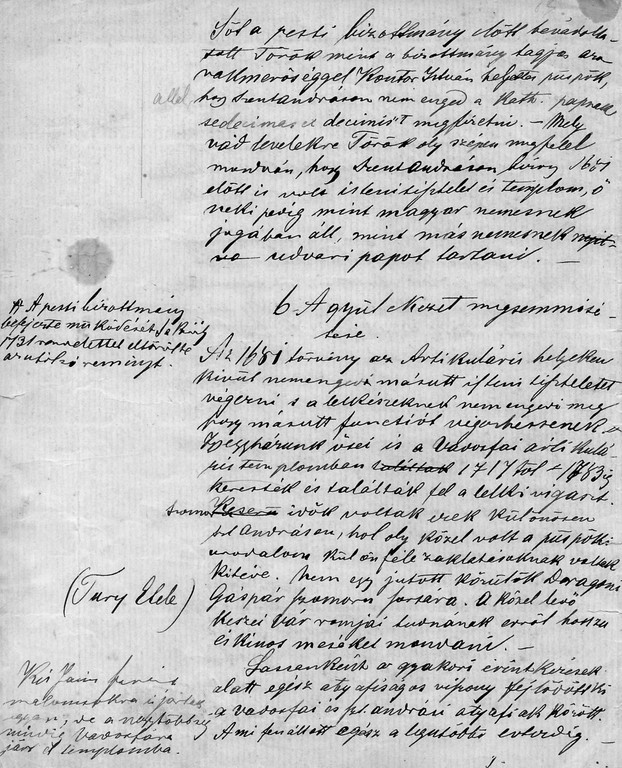 Sőt a pesti bizottmány előtt bevádolta-
tott Török mint a bizottmány tagja, azon
vakmerőséggel Kontor István helyettes püspök,
által, hogy szentandráson nem enged a kath. papnak
se decimát megfizetni. – Mely
vád levelekre Török oly szépen megfelel
mondván, hogy Szentandráson 1681
előtt is volt isteni tisztelet és templom, ő
neki pedig mint magyar nemesnek
jogában áll, mint más nemesnek
udvari papot tartani. –
# A pesti bizottmány
befejezte működését s a király
1731 rendelettel eltörölte
az utolsó reményt.
6. A gyülekezet megsemmisí-
tése.
Az 1681 törvény az Artikuláris helyeken
kívül nem enged másutt isteni tiszteletet
végezni s a lelkészeknek nem engedi meg
hogy másutt functiót végezhessenek.
Egyházunk ősei is a Vadosfai artikulá-
ris templomban találtak 1717 től – 1783 ig
keresték és találták fel a lelki vigaszt.
Szomorú Keserű idők voltak ezek különösen
szt andráson, hol oly közel volt a püspöki
uradalom különféle zaklatásoknak voltak
kitéve. Nem egy jutott közülök Daragoni
Gáspár szomorú sorsára. A közel levő
Keszei vár romjai tudnának erről hosszú
és kínos meséket mondani. –
(Tury Etele)
Lassanként a gyakori érintkezések
alatt egész atyafiságos viszony fejlődött ki
a vadosfai és szt. andrási atyafiak között.
A mi fenállott egész a legutóbbi évtizedig. –
Kis János
malomsokra is jártak
ugyan, de a nagyobb rész
mindig Vadosfára
járt templomba.